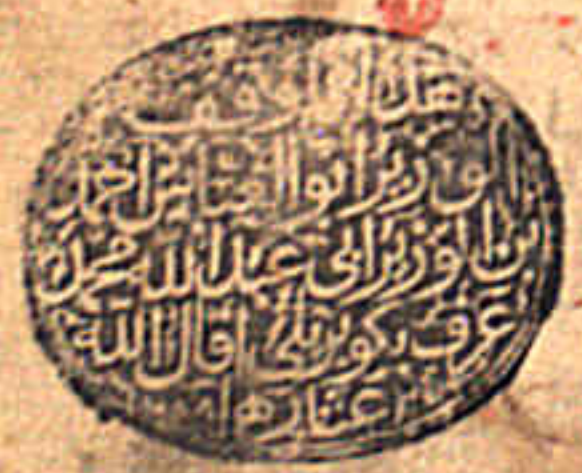 وقف
الوزير ابو العباس احمد
ابن الوزير ابي عبد الله محمد
عرف بكوبريلي اقال الله
عثارهما